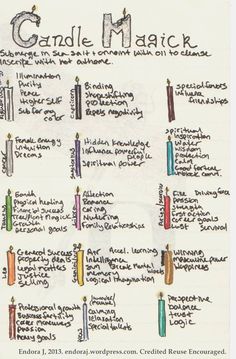 Candle Magick
Submerge in sea salt + annoint with oil to cleanse
inscribe with hot athame.
Illumination
Purity
Peace
Higher Self
Sub for any
color
Binding
Shapeshifting
protection
Repels negativity
special favors
influence
friendships
Female energy
Intuition
Dreams
Hidden knowledge
influence powerful
people
spiritual power
spiritual
inspiration
water
wisdom
Protection
calm
Good fortune
Earth
Physical healing
Financial success
Tree/Plant magick
Growth
personal goals
Affection
Romance
Caring
Nurturing
Family
Fire Driving force
passion
strength
Fast action
career goals
lust survival
General success
Property deals
Legal matters
Justice
Selling
Air Accel. learning
Intelligence
Sun Break Mental
blocks
Memory
Logical Imagination
Winning
Masculine power
Happiness
Professional growth
Business
Career Maneuvers
passion
relaxation
special talents
Perspective
balance
trust
Logic
Endora J, 2013. endoraj.wordpress.com. Credited Reuse Encouraged.